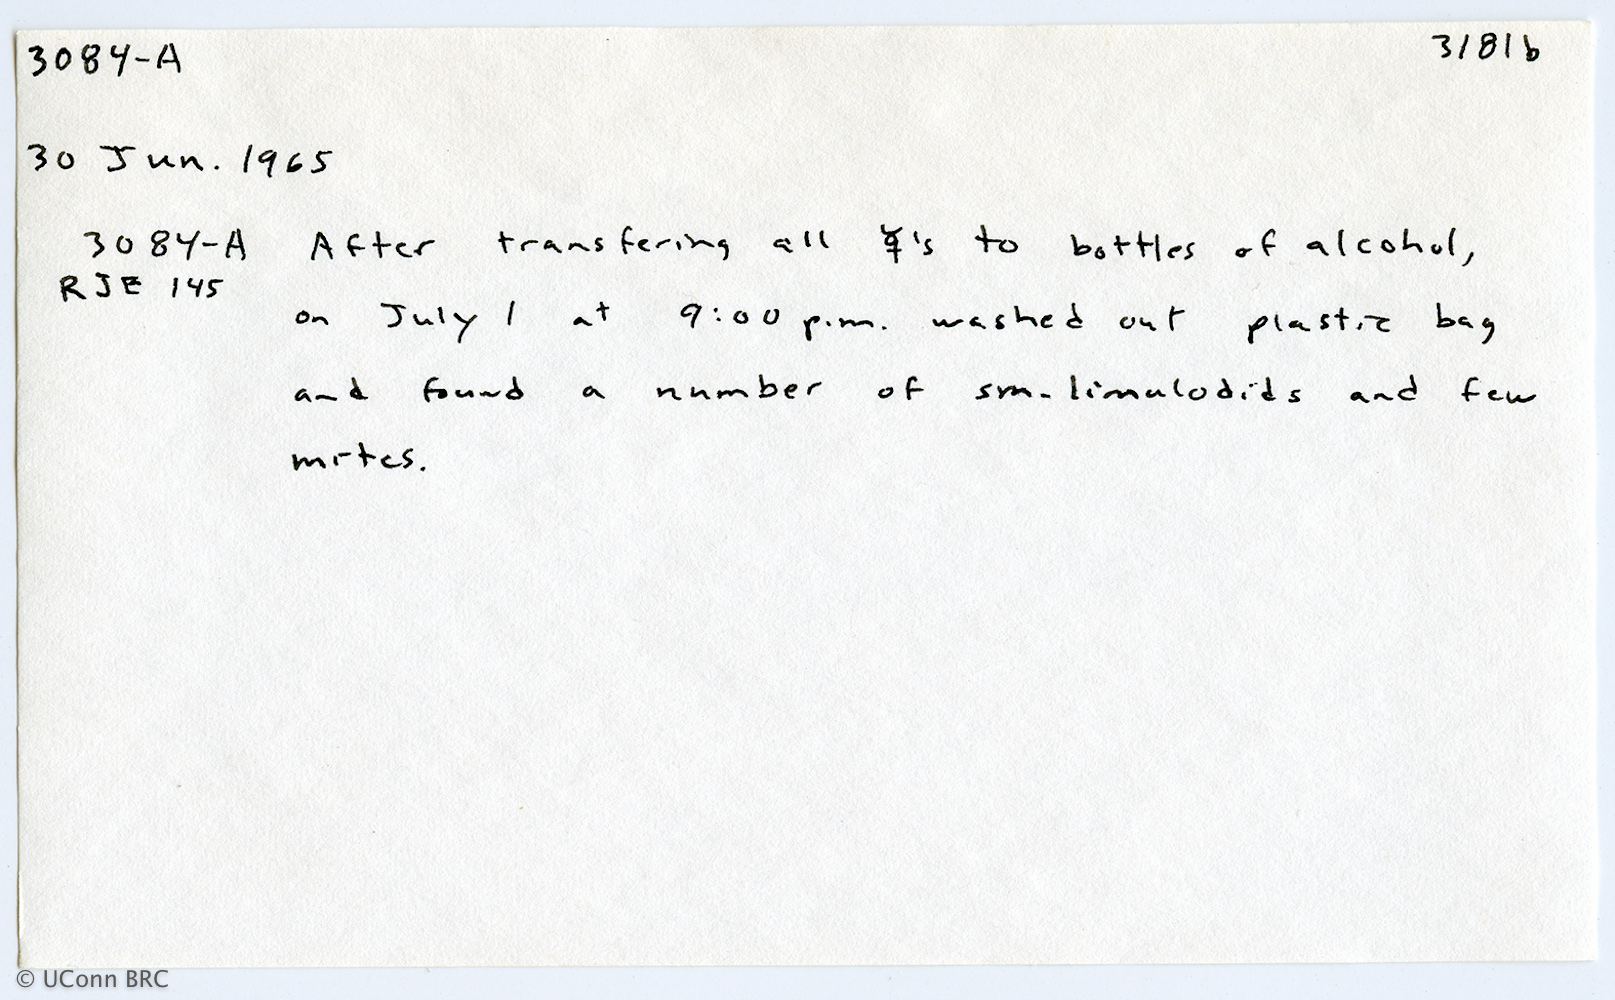 3084-A 3181b
30 Jun. 1965
3084-A After transfering all ☿'s to bottles of alcohol,
RJE 145
on July 1 at 9:00 p.m. washed out plastic bag
and found a number of sm. limulodids and few
mites.
© UConn BRC